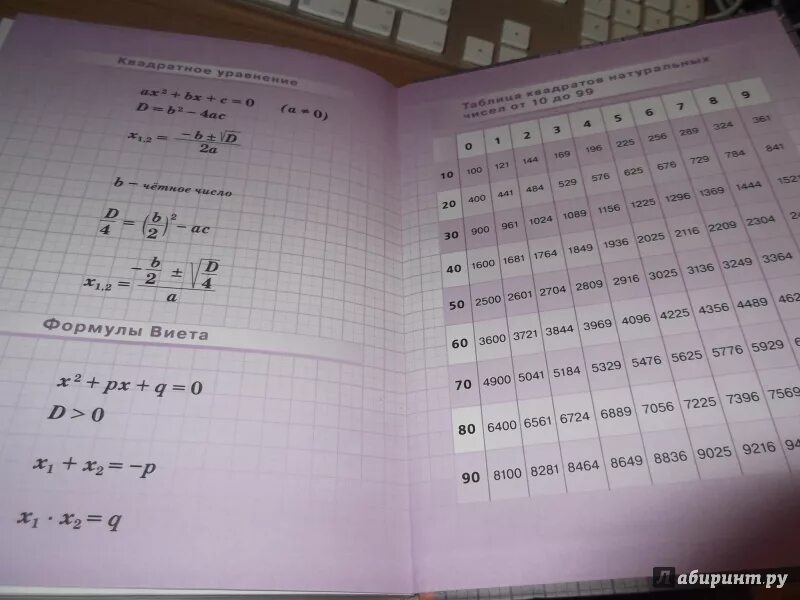 Квадратное уравнение
ax² + bx + c = 0 (a ≠ 0)
D = b² − 4ac
x₁,₂ = (−b ± √D) / 2a
b – чётное число
D/4 = (b/2)² − ac
x₁,₂ = (−b/2 ± √(D/4)) / a
Формулы Виета
x² + px + q = 0
D > 0
x₁ + x₂ = −p
x₁ · x₂ = q
Таблица квадратов натуральных
чисел от 10 до 99
0 1 2 3 4 5 6 7 8 9
10 100 121 144 169 196 225 256 289 324 361
20 400 441 484 529 576 625 676 729 784 841
30 900 961 1024 1089 1156 1225 1296 1369 1444 1521
40 1600 1681 1764 1849 1936 2025 2116 2209 2304
50 2500 2601 2704 2809 2916 3025 3136 3249 3364
60 3600 3721 3844 3969 4096 4225 4356 4489
70 4900 5041 5184 5329 5476 5625 5776 5929
80 6400 6561 6724 6889 7056 7225 7396 7569
90 8100 8281 8464 8649 8836 9025 9216
Лабиринт.ру